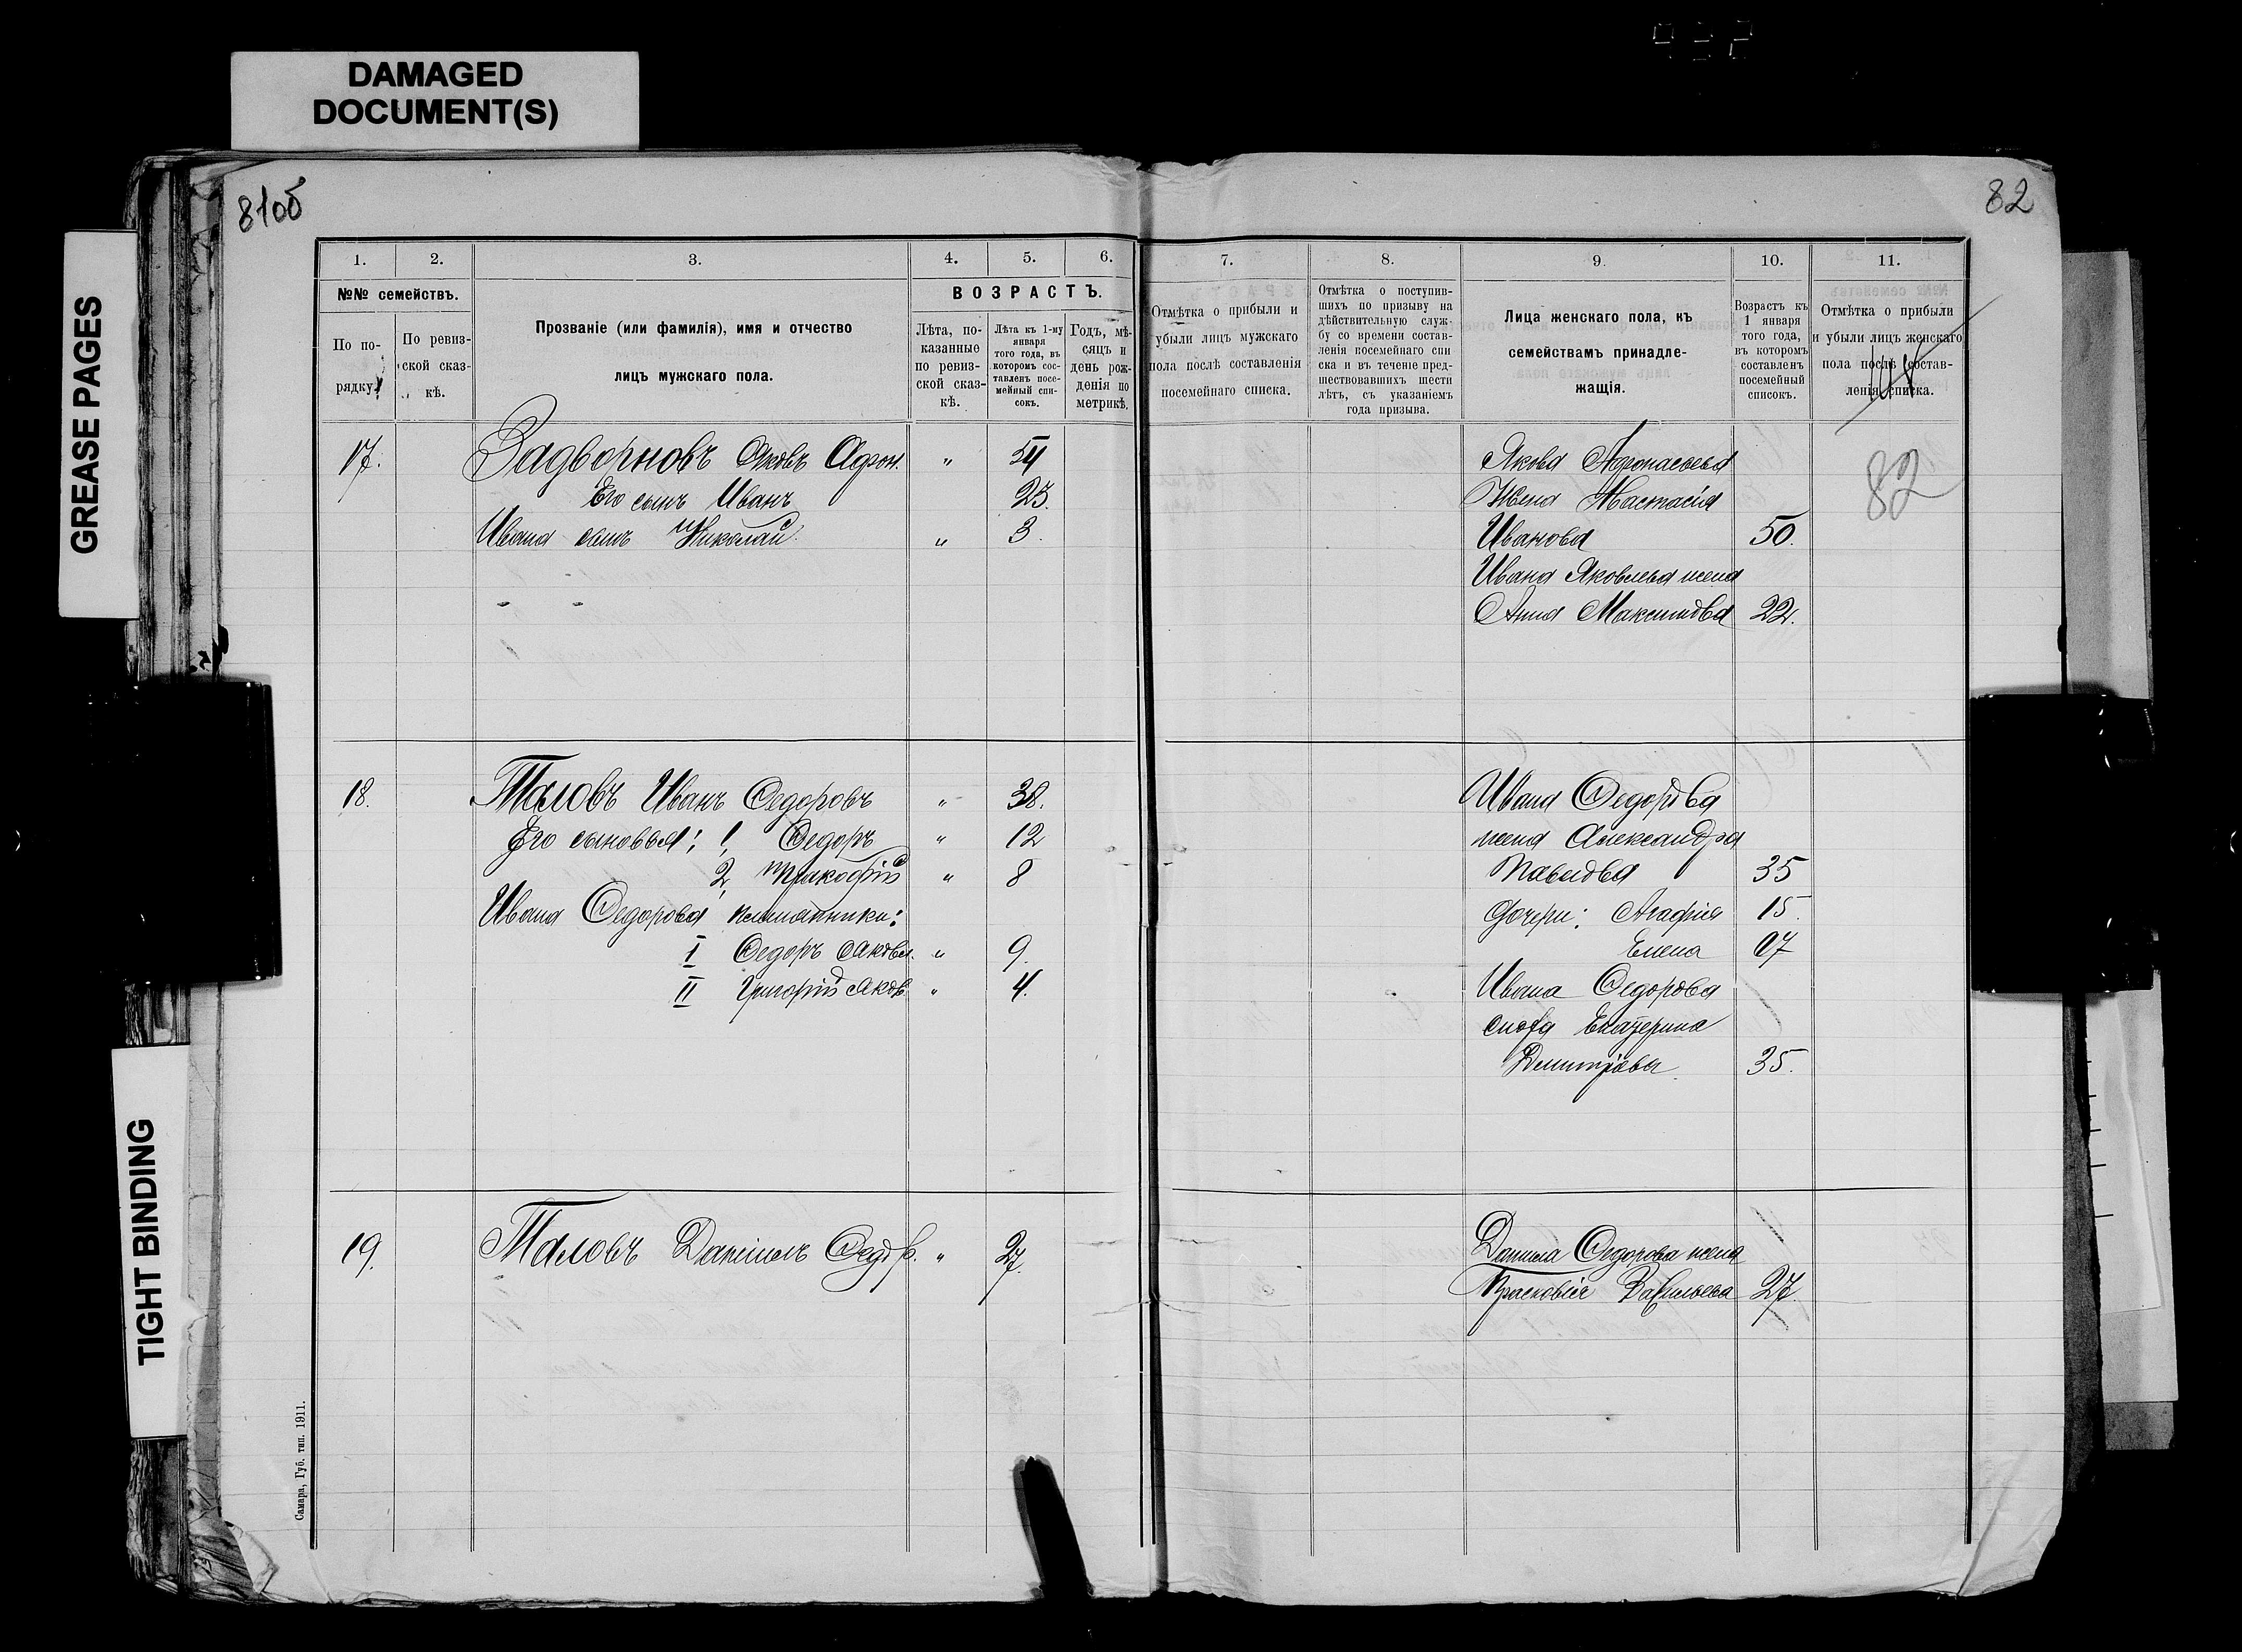 DAMAGED
DOCUMENT(S)
GREASE PAGES
TIGHT BINDING
81об
82
1.
2.
3.
4.
5.
6.
7.
8.
9.
10.
11.
№№ семействъ.
По по-
рядку.
По ревиз-
ской сказ-
кѣ.
Прозваніе (или фамилія), имя и отчество
лицъ мужскаго пола.
ВОЗРАСТЪ.
Лѣта, по-
казанные
по ревиз-
ской сказ-
кѣ.
Лѣта къ 1-му
января
того года, въ
которомъ сос-
тавленъ посе-
мейный спи-
сокъ.
Годъ, мѣ-
сяцъ и
день рож-
денія по
метрикѣ.
Отмѣтка о прибыли и
убыли лицъ мужскаго
пола послѣ составленія
посемейнаго списка.
Отмѣтка о поступив-
шихъ по призыву на
дѣйствительную служ-
бу со времени состав-
ленія посемейнаго спи
ска и въ теченіе пред-
шествовавшихъ шести
лѣтъ, съ указаніемъ
года призыва.
Лица женскаго пола, къ
семействамъ принадле-
жащія.
Возрастъ къ
1 января
того года,
въ которомъ
составленъ
посемейный
списокъ.
Отмѣтка о прибыли
и убыли лицъ женскаго
пола послѣ состав-
ленія списка.
82
17. Задворновъ Яковъ Афон. " 54
Его сынъ Иванъ 23.
Ивана сынъ Николай " 3.
Якова Афонасьева
Жена Настасія
Иванова 50.
Ивана Яковлева жена
Анна Максимова 22.
18. Таловъ Иванъ Федоровъ " 38.
Его сыновья: 1, Федоръ " 12
2, Пракофій " 8
Ивана Федорова племянники:
I Федоръ Яковл. " 9.
II Григорій Яков. " 4.
Ивана Федорова
жена Александра
Павлова 35
дочери: Агафія 15.
Елена 07
Ивана Федорова
сноха Екатерина
Дмитріева 35.
19. Таловъ Даніилъ Федор. " 27.
Данила Федорова жена
Прасковія Васильева 27.
Самара, Губ. тип. 1911.